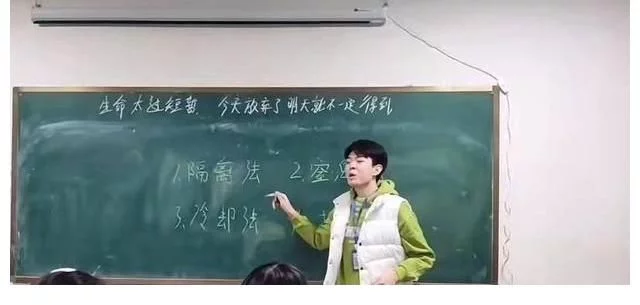 生命太过短暂 今天放弃了明天就不一定得到
1.隔离法 2.窒
3.冷却法